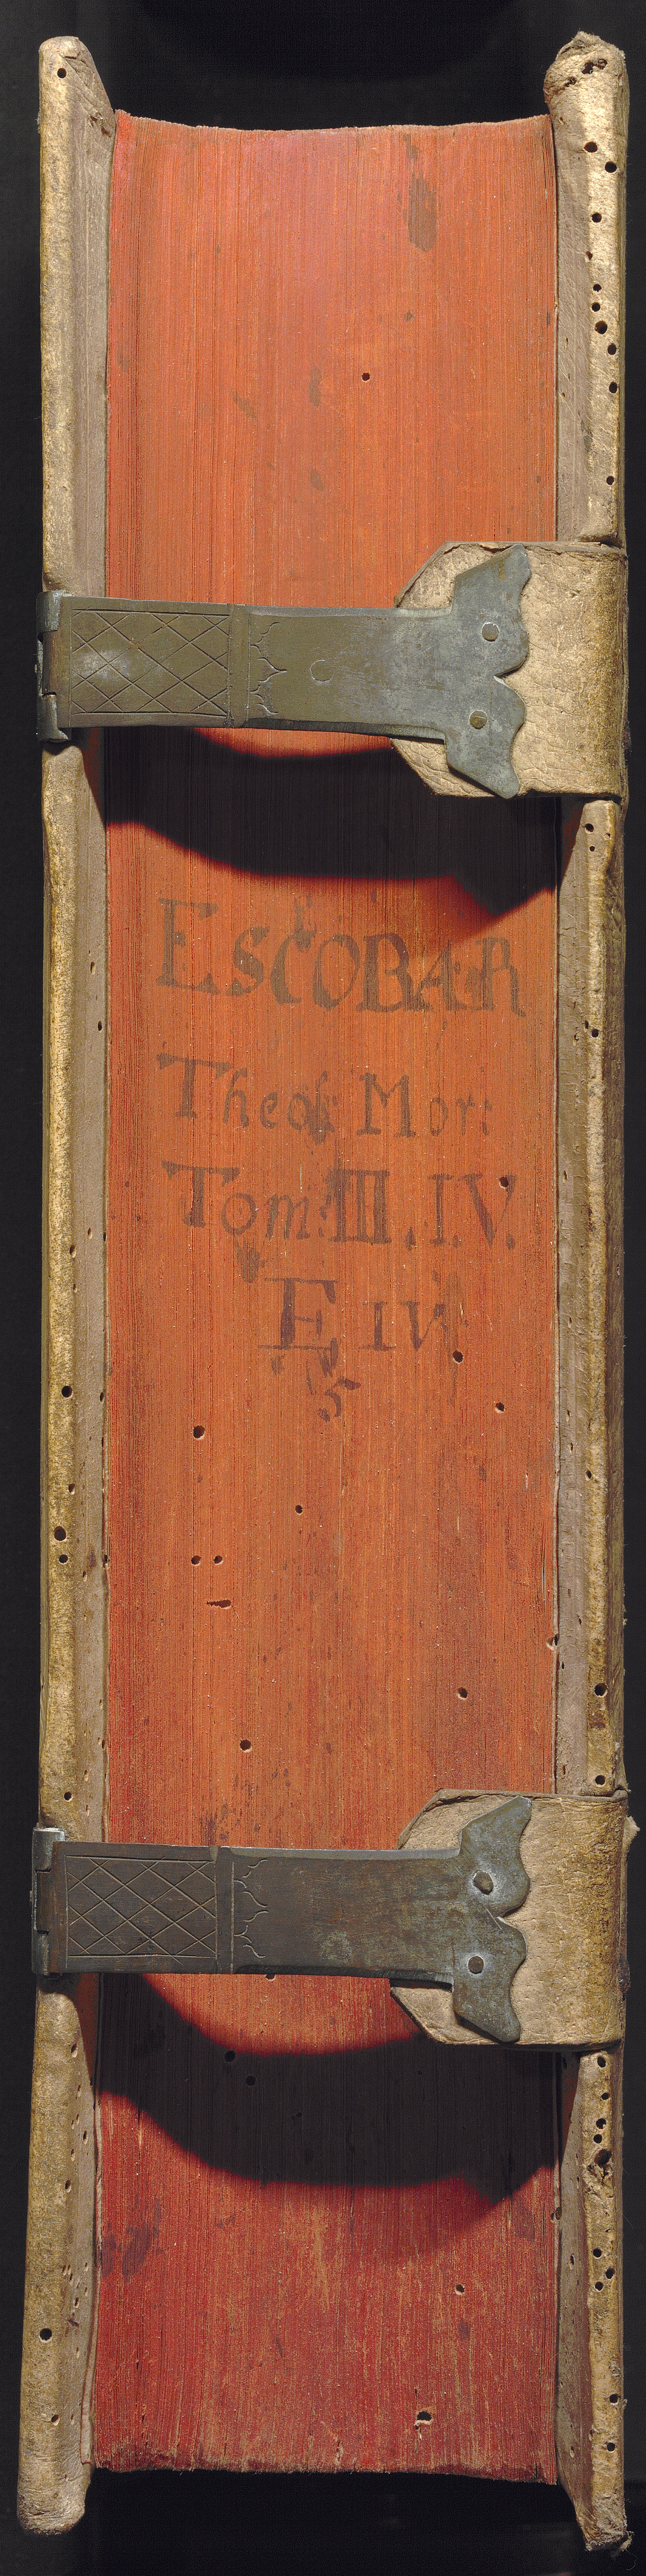 ESCOBAR
Theol: Mor:
Tom: III. I.V.
E IV.
5